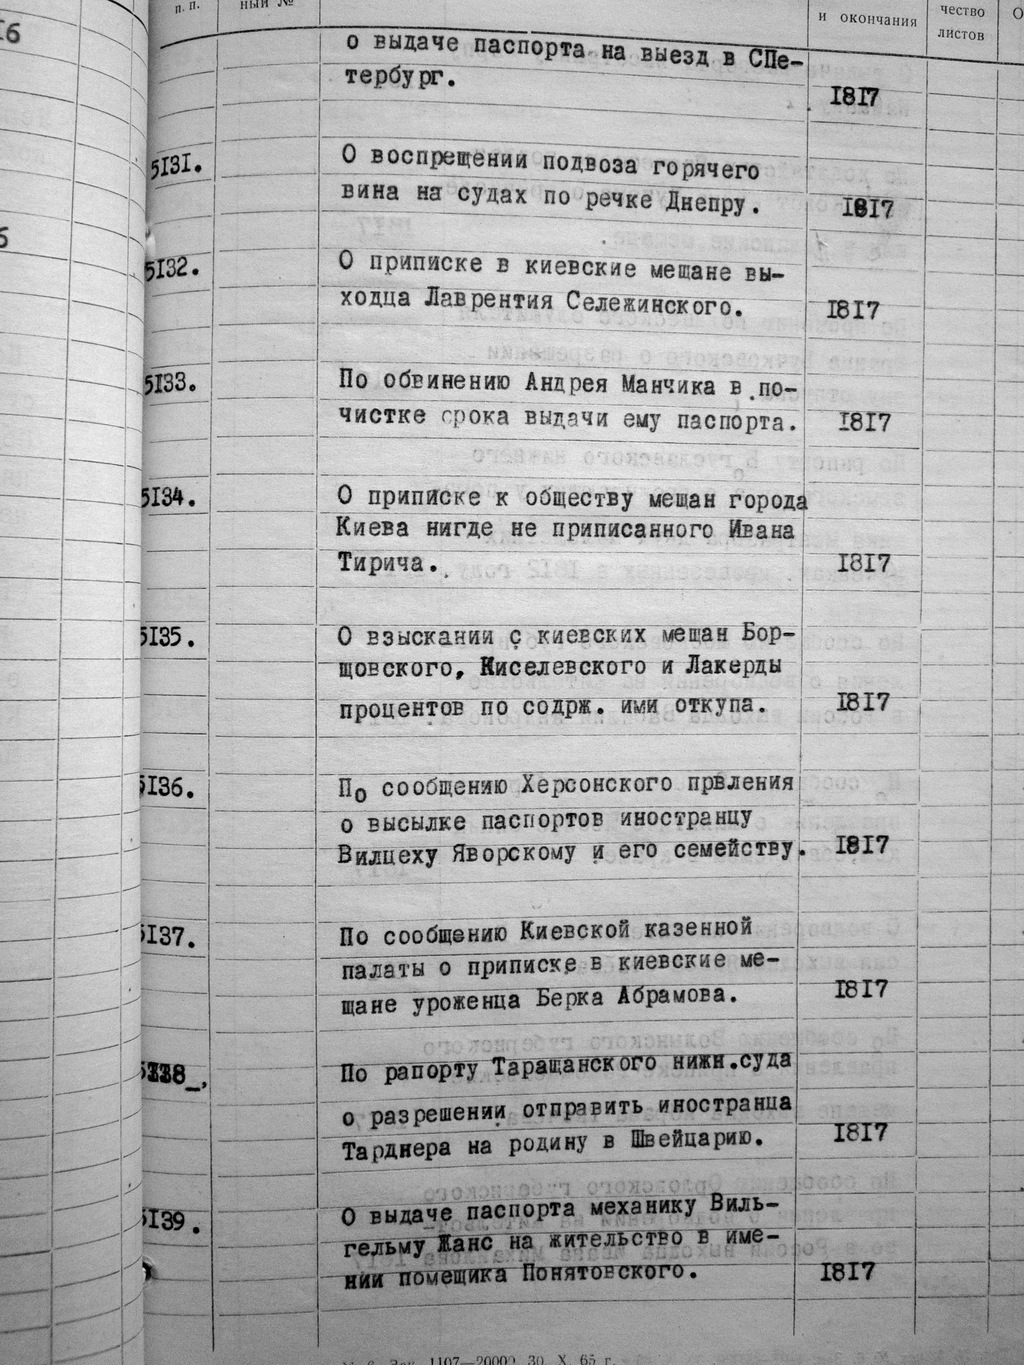 п.п.
ный №
и окончания
чество
листов
о выдаче паспорта на выезд в СПе-
тербург.
1817
5131.
О воспрещении подвоза горячего
вина на судах по речке Днепру.
1817
5132.
О приписке в киевские мещане вы-
ходца Лаврентия Сележинского.
1817
5133.
По обвинению Андрея Манчика в по-
чистке срока выдачи ему паспорта.
1817
5134.
О приписке к обществу мещан города
Киева нигде не приписанного Ивана
Тирича.
1817
5135.
О взыскании с киевских мещан Бор-
щовского, Киселевского и Лакерды
процентов по содрж. ими откупа.
1817
5136.
По сообщению Херсонского првления
о высылке паспортов иностранцу
Вилцеху Яворскому и его семейству.
1817
5137.
По сообщению Киевской казенной
палаты о приписке в киевские ме-
щане уроженца Берка Абрамова.
1817
По рапорту Таращанского нижн.суда
о разрешении отправить иностранца
Тарднера на родину в Швейцарию.
1817
5139.
О выдаче паспорта механику Виль-
гельму Жанс на жительство в име-
нии помещика Понятовского.
1817
1107—20000 30 X 65 г.